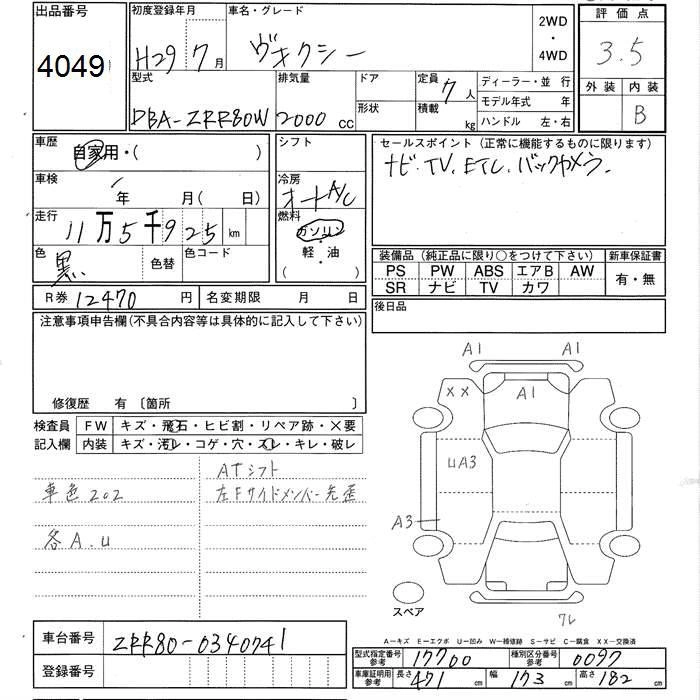 出品番号
4049
初度登録年月
H29 7月
車名・グレード
ヴォクシー
2WD
・
4WD
評価点
3.5
外装 内装
B
型式
DBA-ZRR80W
排気量
2000 cc
ドア
形状
定員 7人
積載 kg
ディーラー・並行
モデル年式 年
ハンドル 左・右
車歴
自家用・( )
シフト
セールスポイント(正常に機能するものに限ります)
ナビ. TV. ETC. バックカメラ.
車検
年 月( 日)
冷房
オートA/C
走行
11万5千925km
燃料
ガソリン
・
軽・油
( )
色
黒
色替
色コード
装備品(純正品に限り○をつけて下さい)
新車保証書
PS PW ABS エアB AW
有・無
SR ナビ TV カワ
R券 12470円
名変期限 月 日
後日品
注意事項申告欄(不具合内容等は具体的に記入して下さい)
修復歴 有 〔箇所 〕
検査員
記入欄
FW キズ・飛石・ヒビ割・リペア跡・×要
内装 キズ・汚れ・コゲ・穴・スレ・キレ・破レ
ATシフト
車色202
左Fサイドメンバー先歪
各A.U
A1 A1
XX A1
UA3
A3
スペア
A-キズ E-エクボ U-凹み W-補修跡 S-サビ C-腐食 XX-交換済
車台番号
ZRR80-0340741
登録番号
型式指定番号
参考
17700
種別区分番号
参考
0097
車庫証明用
参考
長さ 471cm 幅 173cm 高さ 182cm